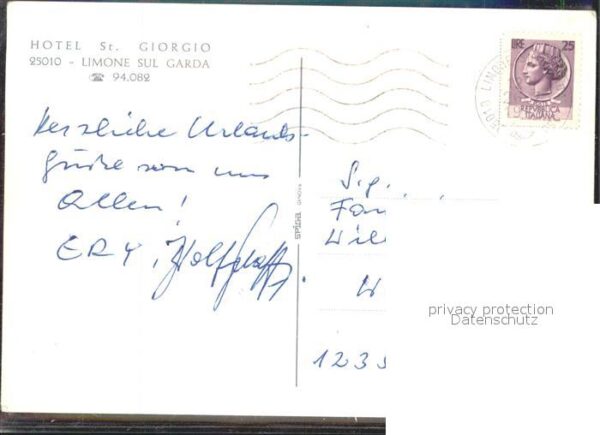 HOTEL St. GIORGIO
25010 - LIMONE SUL GARDA
☎ 94.082
LIRE 25
REPUBBLICA
ITALIANA
Herzliche Urlaubs-
grüße von uns
Allen!
ERY, Wolfgang
spida GENOVA
Sig.
Fam
Will
W
1235
privacy protection
Datenschutz